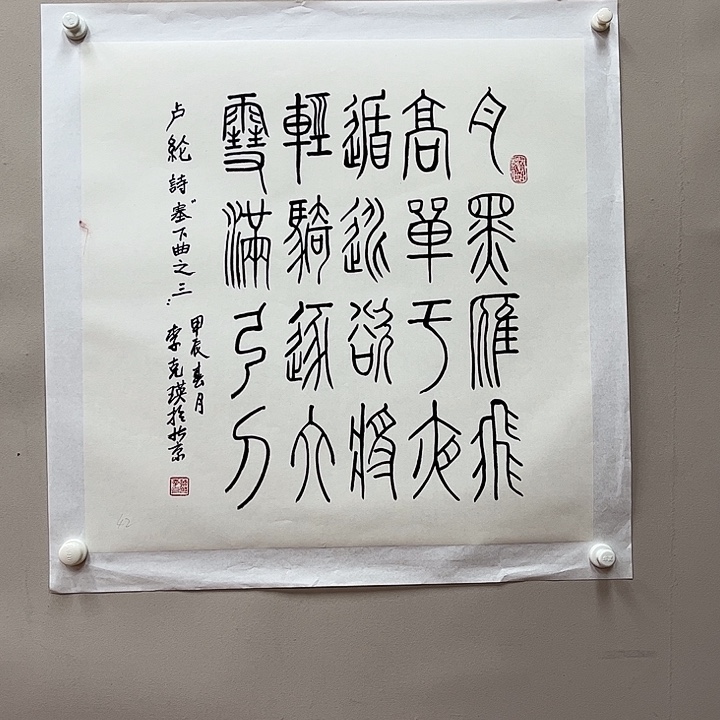 月黑雁飛
高單于夜
遁逃欲將
輕騎逐大
雪滿弓刀
卢綸詩"塞下曲之三"
甲辰春月
李克瑛於北京
42